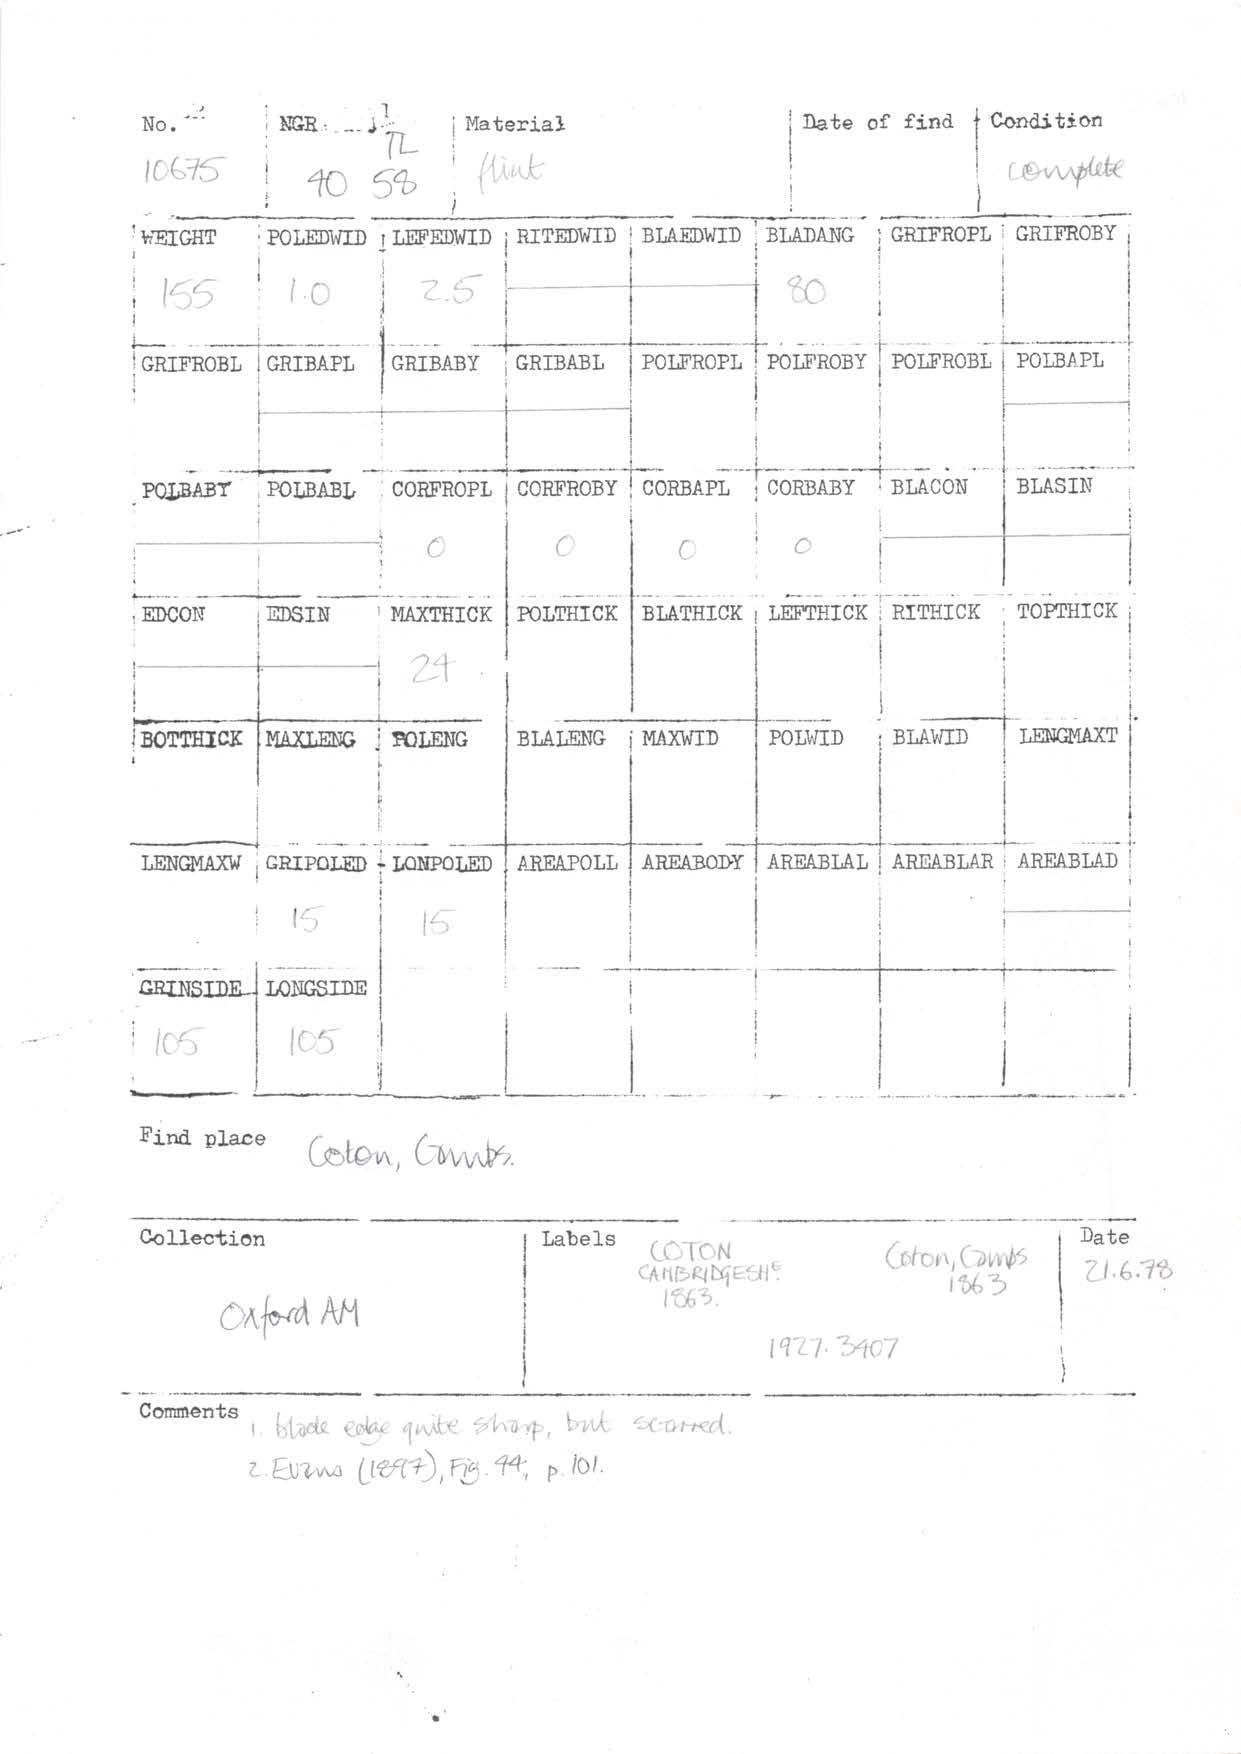 No. NGR Material Date of find Condition
10675 TL 40 58 flint complete
WEIGHT POLEDWID LEFEDWID RITEDWID BLAEDWID BLADANG GRIFROPL GRIFROBY
155 1.0 2.5 80
GRIFROBL GRIBAPL GRIBABY GRIBABL POLFROPL POLFROBY POLFROBL POLBAPL
POLBABY POLBABL CORFROPL CORFROBY CORBAPL CORBABY BLACON BLASIN
0 0 0 0
EDCON EDSIN MAXTHICK POLTHICK BLATHICK LEFTHICK RITHICK TOPTHICK
24
BOTTHICK MAXLENG POLENG BLALENG MAXWID POLWID BLAWID LENGMAXT
LENGMAXW GRIPOLED LONPOLED AREAPOLL AREABODY AREABLAL AREABLAR AREABLAD
15 15
GRINSIDE LONGSIDE
105 105
Find place Coton, Cambs.
Collection Labels Date
Oxford AM
COTON
CAMBRIDGESHE.
1863.
Coton, Cambs
1863
1927.3407
21.6.78
Comments 1. blade edge quite sharp, but scarred.
2. Evans (1897), Fig. 44, p.101.